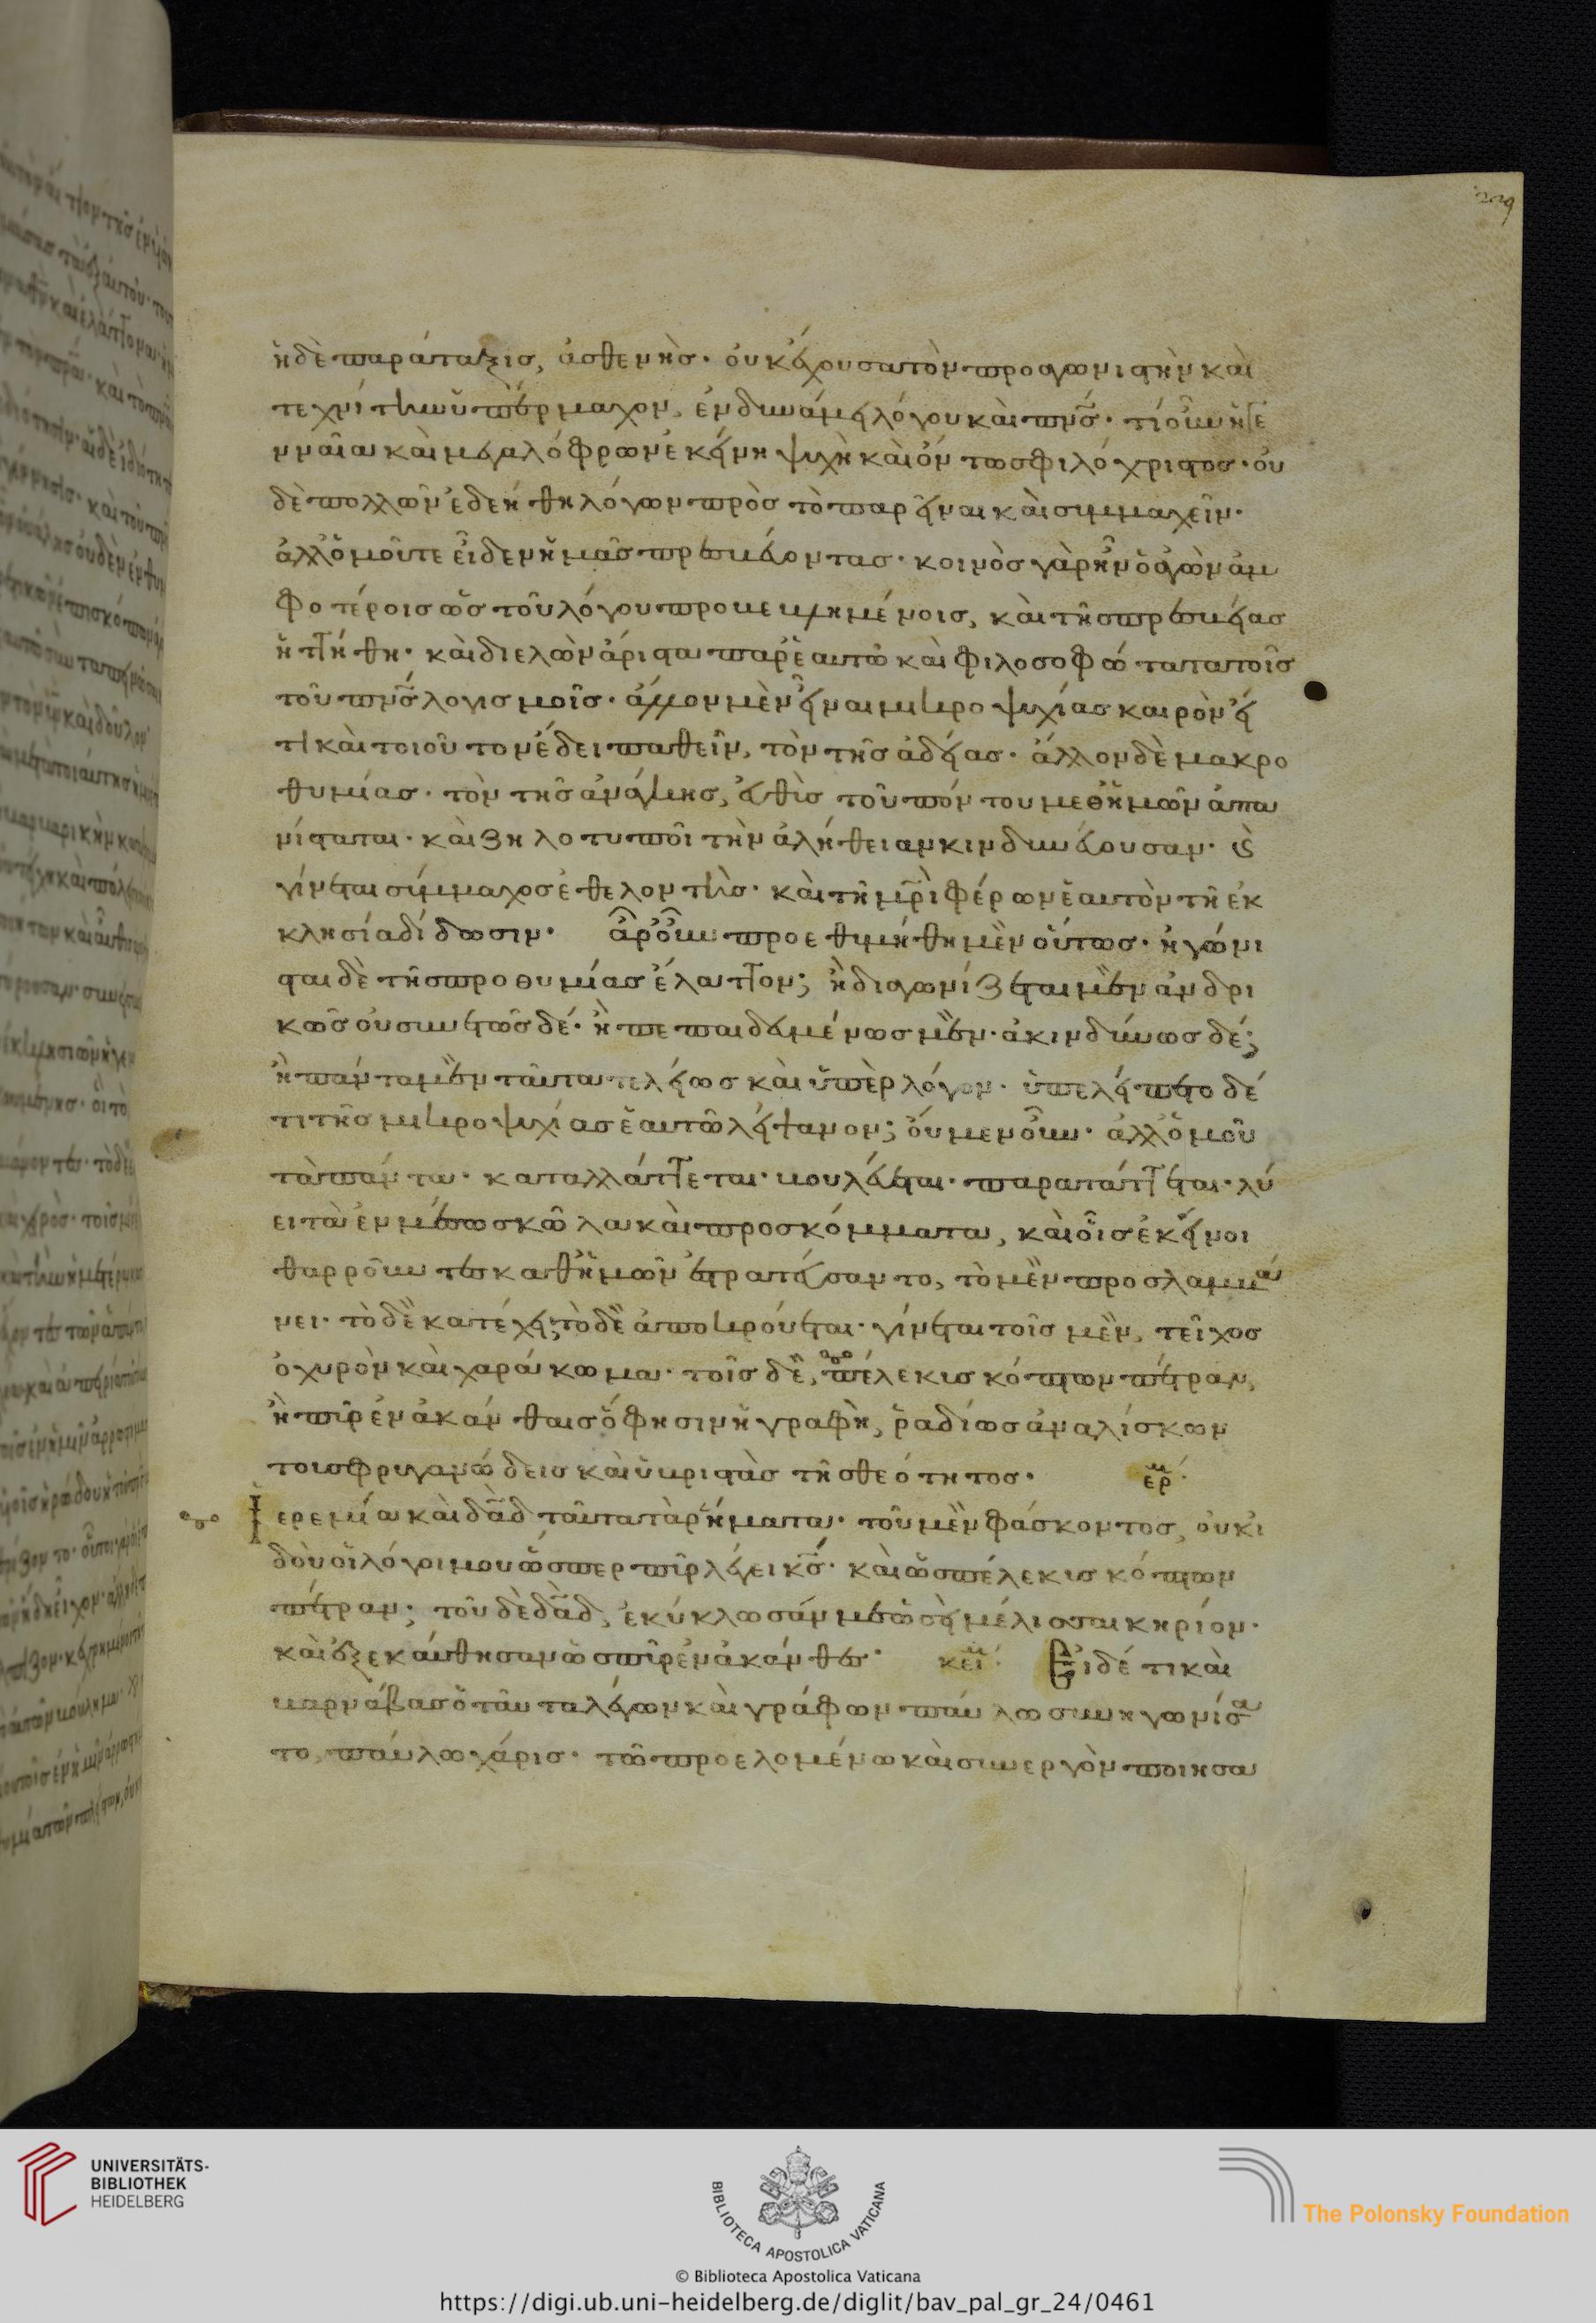 229
ἡ δὲ παράταξις, ἀσθενὴς· οὐκ ἔχουσα τὸν προαγωνιστὴν καὶ
τεχνίτην ὑπέρμαχον, ἐν δυνάμει λόγου καὶ πνς· τί οὖν ἡ γε
νναία καὶ μεγαλόφρων ἐκείνη ψυχὴ καὶ ὄντως φιλόχριστος· οὐ
δὲ πολλῶν ἐδεήθη λόγων πρὸς τὸ παρεῖναι καὶ συμμαχεῖν·
ἀλλ' ὁμοῦ τε εἶδεν ἡμᾶς πρεσβεύοντας· κοινὸς γὰρ ἦν ὁ ἀγὼν ἀμ
φοτέροις ὡς τοῦ λόγου προβεβλημένοις, καὶ τῆς πρεσβείας
ἡττήθη· καὶ διελὼν ἄριστα παρ' ἑαυτῶ καὶ φιλοσοφώτατα τοῖς
τοῦ πνς λογισμοῖς· ἄλλον μὲν εἶναι μικροψυχίας καιρὸν εἴ
τι καὶ τοιοῦτον ἔδει παθεῖν, τὸν τῆς ἀδείας· ἄλλον δὲ μακρο
θυμίας· τὸν τῆς ἀνάγκης, εὐθὺς τοῦ πόντου μεθ' ἡμῶν ἀπα
νίσταται· καὶ ζηλοτυποῖ τὴν ἀλήθειαν κινδυνεύουσαν· καὶ
γίνεται σύμμαχος ἐθελοντὴς· καὶ τῆ μρὶ φέρων ἑαυτὸν τῆ ἐκ
κλησία δίδωσιν· ἆρ' οὖν προεθυμήθη μὲν οὕτως· ἠγώνι
σται δὲ τῆς προθυμίας ἔλαττον; ἢ διαγωνίζεται μὲν ἀνδρι
κῶς οὐ συνετῶς δέ· ἢ πεπαιδευμένως μὲν· ἀκινδύνως δέ;
ἢ πάντα μὲν ταῦτα τελείως καὶ ὑπὲρ λόγον· ὑπελείπετο δέ
τι τῆς μικροψυχίας ἑαυτῶ λείψανον; οὐμενοῦν· ἀλλ' ὁμοῦ
τὰ πάντα· καταλλάττεται· βουλεύεται· παρατάττεται· λύ
ει τὰ ἐν μέσω σκῶλα καὶ προσκόμματα, καὶ οἷς ἐκεῖνοι
θαρροῦντες καθ' ἡμῶν ἐστρατεύσαντο, τὸ μὲν προσλαμβά
νει· τὸ δὲ κατέχει· τὸ δὲ ἀποκρούεται· γίνεται τοῖς μὲν, τεῖχος
ὀχυρὸν καὶ χαράκωμα· τοῖς δὲ, πέλεκυς κόπτων πέτραν,
ἢ πῦρ ἐν ἀκάνθαις ὅ φησιν ἡ γραφὴ, ῥαδίως ἀναλίσκων
τοὺς φρυγανώδεις καὶ ὑβριστὰς τῆς θεότητος· ἑρ
Ἱερεμία καὶ δαδ ταῦτα τὰ ῥήματα· τοῦ μὲν φάσκοντος, οὐκ ἰ
δοὺ οἱ λόγοι μου ὥσπερ πῦρ λέγει κς· καὶ ὡς πέλεκυς κόπτων
πέτραν; τοῦ δὲ δαδ, ἐκύκλωσάν με ὡσεὶ μέλισσαι κηρίον·
καὶ ἐξεκαύθησαν ὡς πῦρ ἐν ἀκάνθαις· κεί Εἰ δέ τι καὶ
βαρνάβας ὁ ταῦτα λέγων καὶ γράφων παύλω συνηγωνίσα
το, παύλω χάρις· τῶ προελομένω καὶ συνεργὸν ποιησα
UNIVERSITÄTS-
BIBLIOTHEK
HEIDELBERG
BIBLIOTECA APOSTOLICA VATICANA
The Polonsky Foundation
© Biblioteca Apostolica Vaticana
https://digi.ub.uni-heidelberg.de/diglit/bav_pal_gr_24/0461